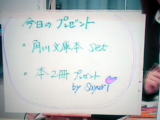 今日のプレゼント
・角川文庫本 set
・本2冊プレゼント
by Sayuri